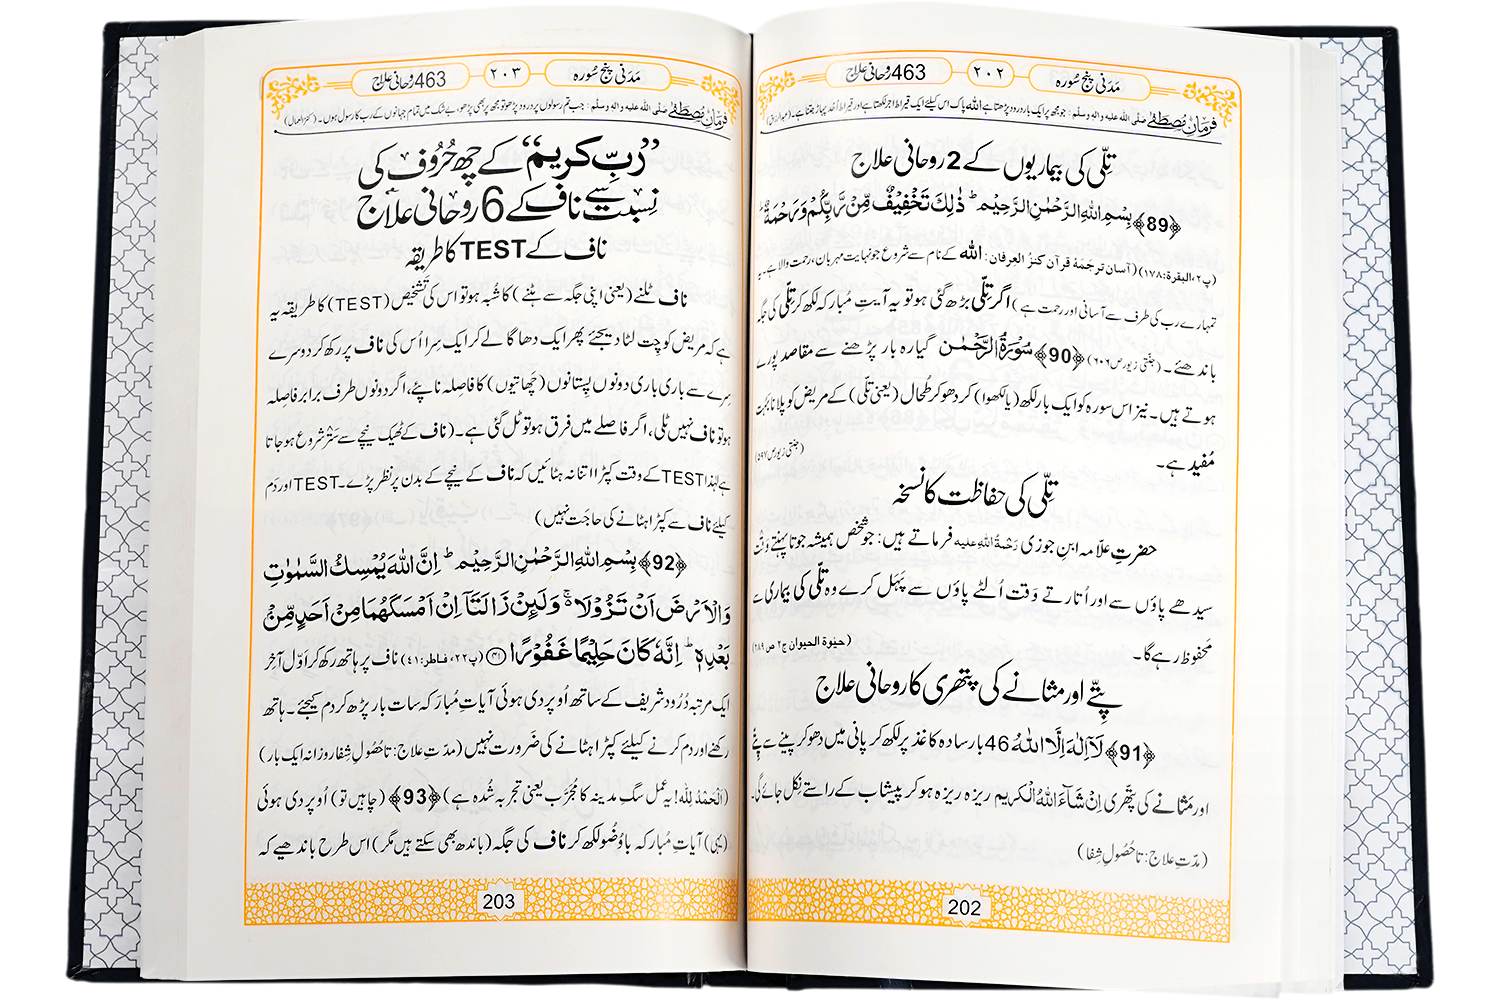 مَدَنی پنج سُورہ
۲۰۲
463 رُوحانی علاج
فرمانِ مُصطَفٰے صلَّی اللہ علیہ واٰلہٖ وسلَّم : جو مجھ پر ایک بار درود پڑھتا ہے اللہ پاک اس کیلئے ایک قیراط اجر لکھتا ہے اور قیراط اُحُد پہاڑ جتنا ہے۔
تِلّی کی بیماریوں کے 2 روحانی علاج
﴿89﴾ بِسْمِ اللّٰهِ الرَّحْمٰنِ الرَّحِیْمِ ؕ ذٰلِكَ تَخْفِیْفٌ مِّنْ رَّبِّكُمْ وَ رَحْمَةٌ ؕ
(پ۲، البقرۃ: ۱۷۸) (آسان ترجَمۂ قرآن کنزُ العِرفان: اللہ کے نام سے شروع جو نہایت مہربان، رحمت والا ہے۔ یہ
تمہارے رب کی طرف سے آسانی اور رحمت ہے) اگر تِلّی بڑھ گئی ہو تو یہ آیتِ مُبارَکہ لکھ کر تِلّی کی جگہ
باندھئے۔ (جنّتی زیور ص۶۰۶) ﴿90﴾ سُوْرَةُ الرَّحْمٰن گیارہ بار پڑھنے سے مقاصد پورے
ہوتے ہیں۔ نیز اس سورہ کو ایک بار لکھ (یا لکھوا) کر دھو کر طُحال (یعنی تِلّی) کے مریض کو پلانا بہُت
مُفید ہے۔ (جنّتی زیور ص۵۹۷)
تِلّی کی حفاظت کا نسخہ
حضرتِ علّامہ ابنِ جوزی رَحْمَۃُ اللہِ علیہ فرماتے ہیں: جو شخص ہمیشہ جوتا پہنتے وَقْت
سیدھے پاؤں سے اور اُتارتے وَقت اُلٹے پاؤں سے پَہَل کرے وہ تِلّی کی بیماری سے
مَحفوظ رہے گا۔ (حیٰوۃ الحیوان ج۲ ص۲۸۹)
پِتّے اور مثانے کی پتھری کا روحانی علاج
﴿91﴾ لَاۤ اِلٰهَ اِلَّا اللّٰهُ 46 بار سادہ کاغذ پر لکھ کر پانی میں دھو کر پینے سے پِتّے
اور مَثانے کی پتّھری اِنْ شَآءَ اللّٰهُ الْکریم ریزہ ریزہ ہو کر پیشاب کے راستے نِکل جائے گی۔
(مدّتِ علاج: تا حُصُولِ شِفا)
202
مَدَنی پنج سُورہ
۲۰۳
463 رُوحانی علاج
فرمانِ مُصطَفٰے صلَّی اللہ علیہ واٰلہٖ وسلَّم : جب تم رسولوں پر درود پڑھو تو مجھ پر بھی پڑھو، بے شک میں تمام جہانوں کے رب کا رسول ہوں۔ (کنز العمال)
”ربِّ کریم“ کے چھ حُرُوف کی
نِسبت سے ناف کے 6 روحانی علاج
ناف کے TEST کا طریقہ
ناف ٹلنے (یعنی اپنی جگہ سے ہٹنے) کا شُبہ ہو تو اس کی تَشخیص (TEST) کا طریقہ یہ
ہے کہ مریض کو چِت لٹا دیجئے پھر ایک دھاگا لے کر ایک سِرا اُس کی ناف پر رکھ کر دوسرے
سِرے سے باری باری دونوں پِستانوں (چھاتیوں) کا فاصلہ ناپئے، اگر دونوں طرف برابر فاصِلہ
ہو تو ناف نہیں ٹلی، اگر فاصلے میں فرق ہو تو ٹل گئی ہے۔ (ناف کے ٹھیک نیچے سے سَتْر شُروع ہو جاتا
ہے لہٰذا TEST کے وقت کپڑا اتنا نہ ہٹائیں کہ ناف کے نیچے کے بدن پر نظر پڑے۔ TEST اور دَم
کیلئے ناف سے کپڑا ہٹانے کی حاجَت نہیں)
﴿92﴾ بِسْمِ اللّٰهِ الرَّحْمٰنِ الرَّحِیْمِ ؕ اِنَّ اللّٰهَ یُمْسِكُ السَّمٰوٰتِ
وَ الْاَرْضَ اَنْ تَزُوْلَا ۚ۬ وَ لَىِٕنْ زَالَتَاۤ اِنْ اَمْسَكَهُمَا مِنْ اَحَدٍ مِّنْۢ
بَعْدِهٖ ؕ اِنَّهٗ كَانَ حَلِیْمًا غَفُوْرًا ﴿۴۱﴾ (پ۲۲، فاطر: ۴۱) ناف پر ہاتھ رکھ کر اوّل آخِر
ایک مرتبہ دُرُود شریف کے ساتھ اُوپر دی ہوئی آیاتِ مُبارَکہ سات بار پڑھ کر دم کیجئے۔ ہاتھ
رکھنے اور دم کرنے کیلئے کپڑا ہٹانے کی ضَرورت نہیں (مدّتِ علاج: تا حُصُولِ شِفا روزانہ ایک بار)
(اَلْحَمْدُ لِلّٰہ! یہ عمل سگِ مدینہ کا مُجَرَّب یعنی تجرِبہ شُدہ ہے) ﴿93﴾ (چاہیں تو) اُوپر دی ہوئی
(یہی) آیاتِ مُبارکہ باوُضُو لکھ کر ناف کی جگہ (باندھ بھی سکتے ہیں مگر) اس طرح باندھیے کہ
203